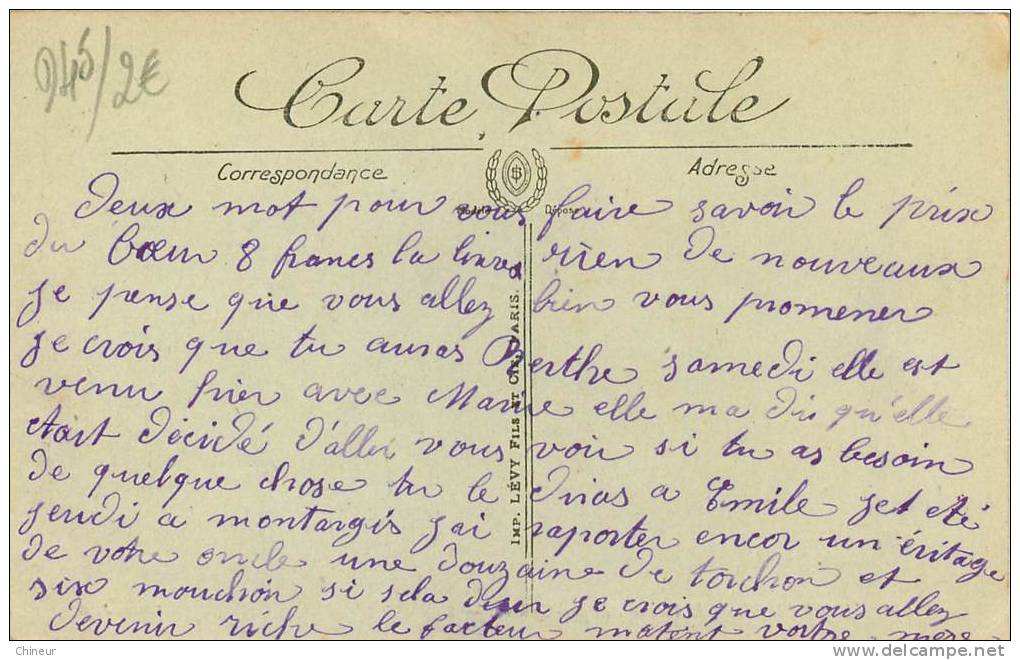 945/2€
Carte Postale
Correspondance
Adresse
Modèle Déposé
IMP. LÉVY FILS ET CIE, PARIS.
deux mot pour vous faire savoir le prix
du bœuf 8 francs la livre rien de nouveaux
je pense que vous allez bien vous promener
je crois que tu auras Berthe samedi elle est
venu hier avec Marie elle ma dis qu'elle
etait décidé d'aller vous voir si tu as besoin
de quelque chose tu le diras a Emile jet eté
jeudi a montargis jai raporter encor un éritage
de votre oncle une douzaine de torchon et
six mouchoir si sela dur je crois que vous allez
devenir riche le facteur votre mere
Chineur
www.delcampe.net